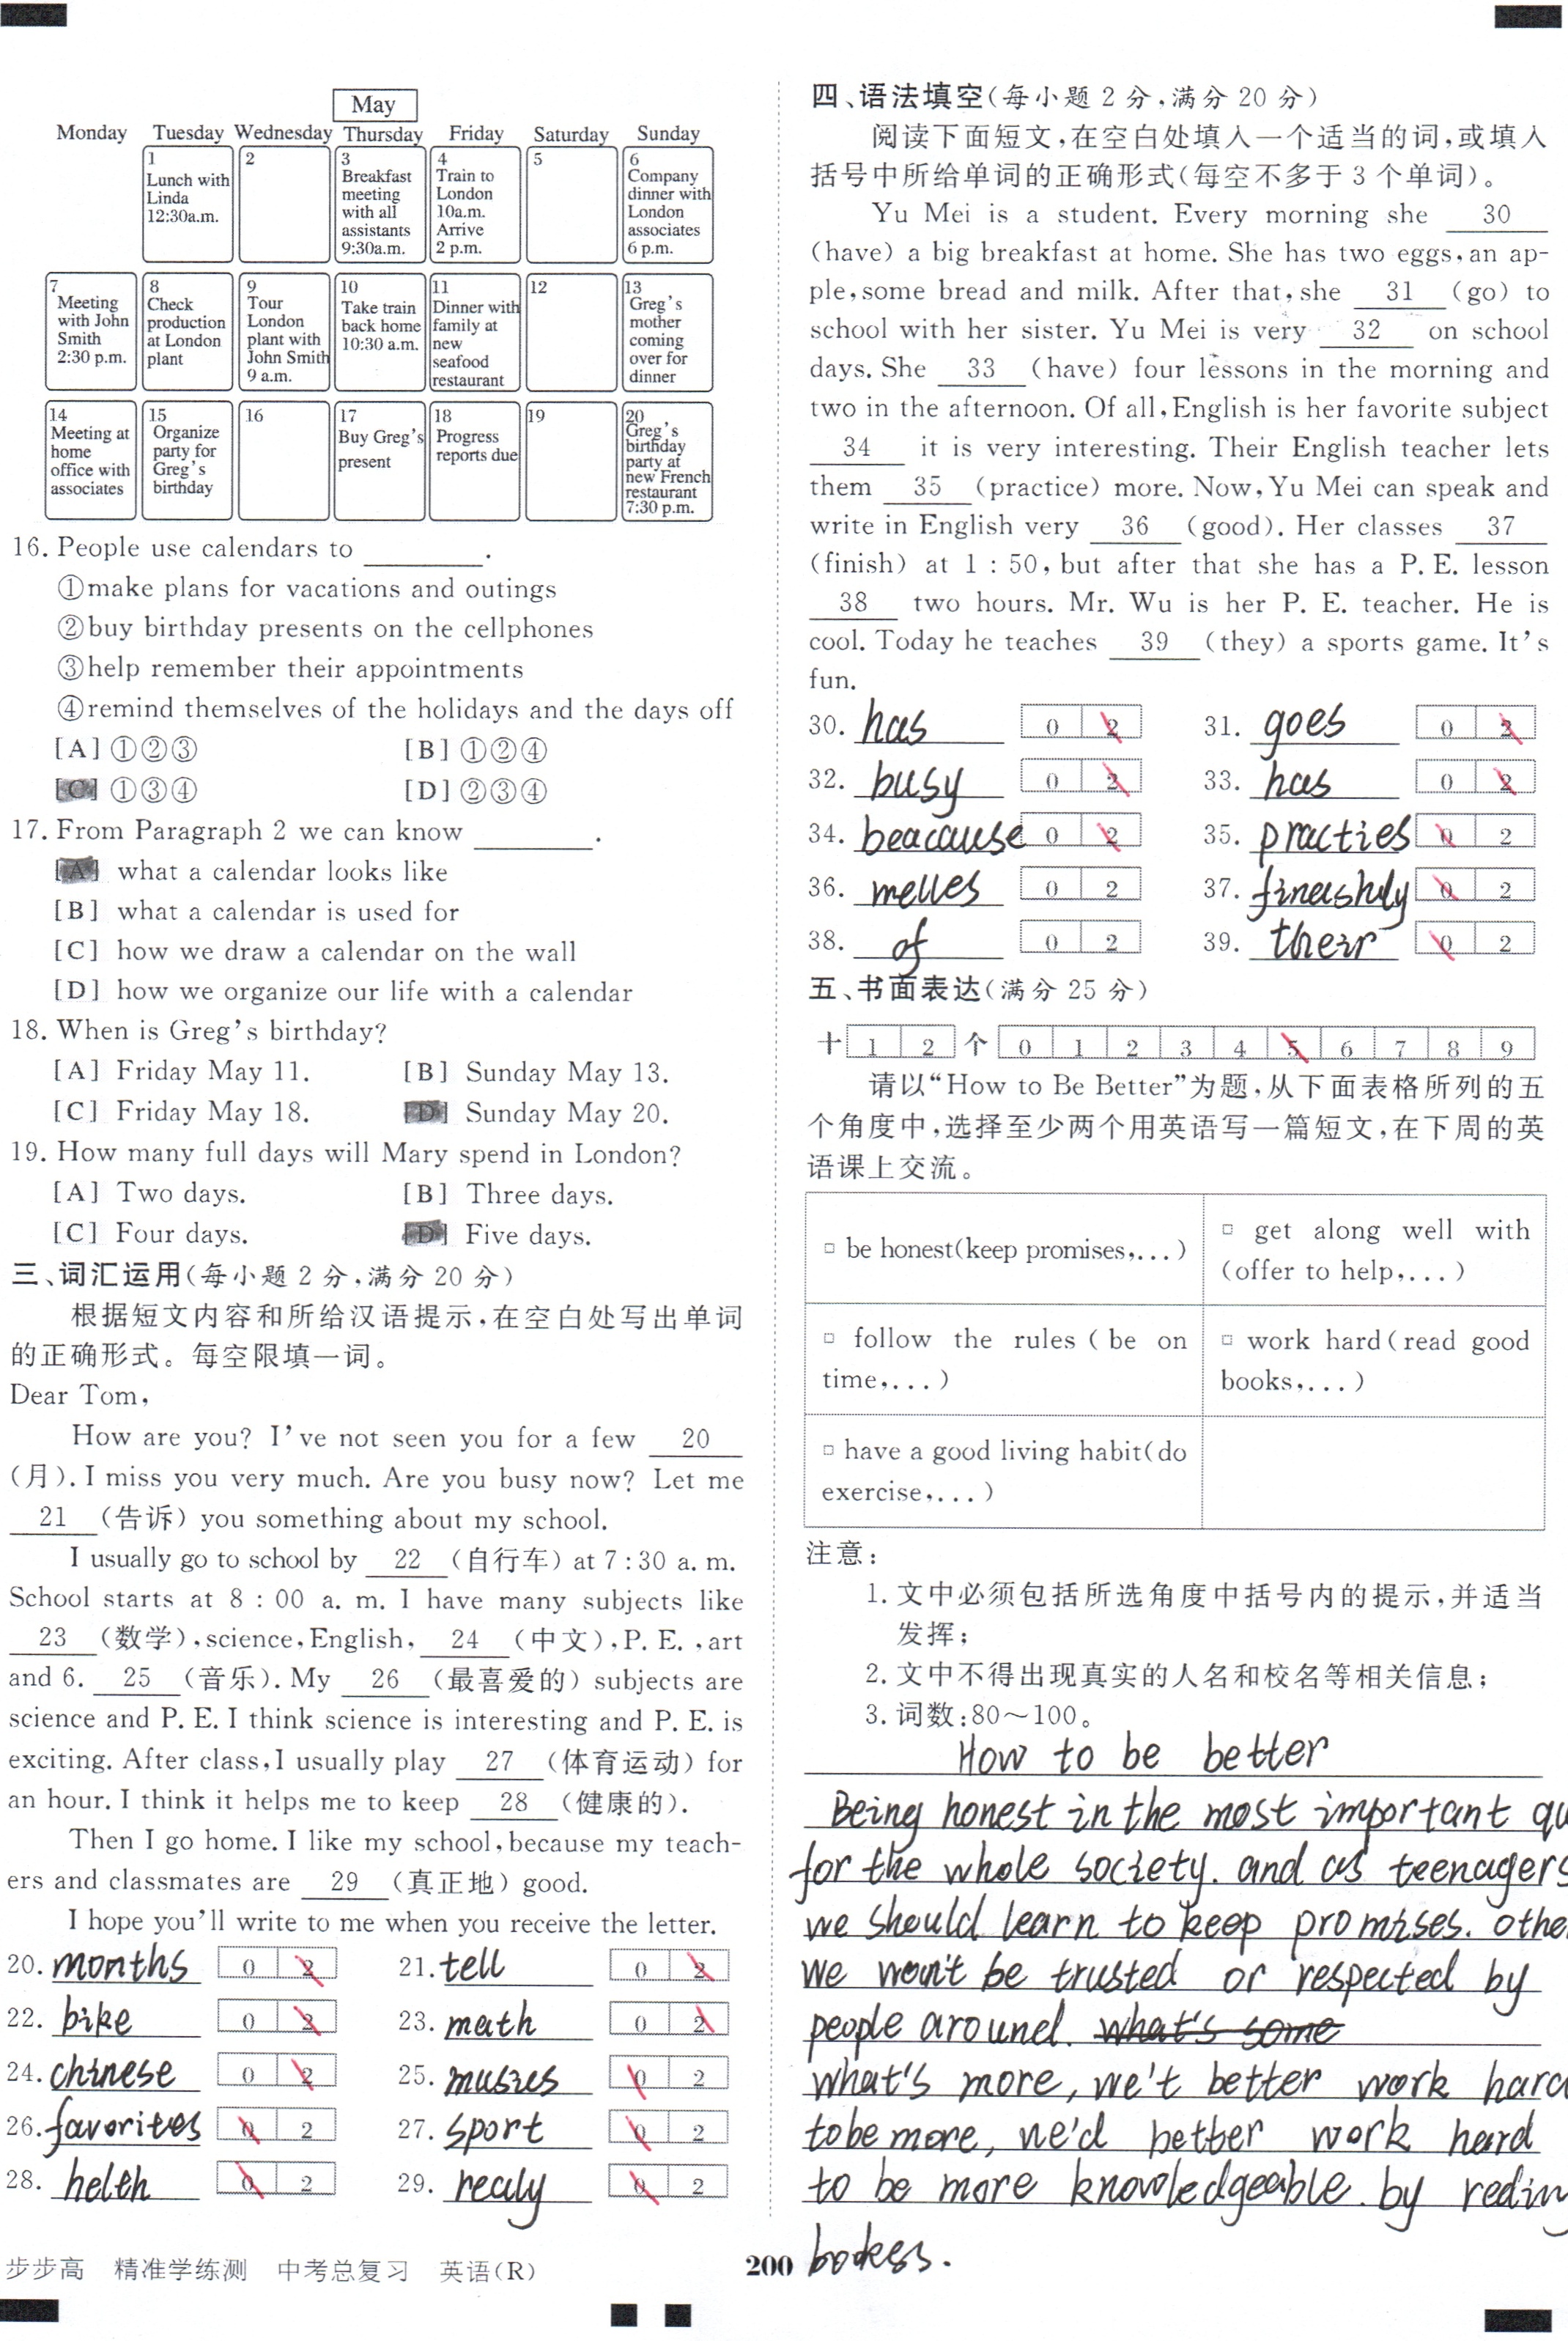 May
Monday Tuesday Wednesday Thursday Friday Saturday Sunday
1 Lunch with Linda 12:30a.m.
2
3 Breakfast meeting with all assistants 9:30a.m.
4 Train to London 10a.m. Arrive 2 p.m.
5
6 Company dinner with London associates 6 p.m.
7 Meeting with John Smith 2:30 p.m.
8 Check production at London plant
9 Tour London plant with John Smith 9 a.m.
10 Take train back home 10:30 a.m.
11 Dinner with family at new seafood restaurant
12
13 Greg's mother coming over for dinner
14 Meeting at home office with associates
15 Organize party for Greg's birthday
16
17 Buy Greg's present
18 Progress reports due
19
20 Greg's birthday party at new French restaurant 7:30 p.m.
16. People use calendars to ________.
①make plans for vacations and outings
②buy birthday presents on the cellphones
③help remember their appointments
④remind themselves of the holidays and the days off
[A] ①②③ [B] ①②④
[C] ①③④ [D] ②③④
17. From Paragraph 2 we can know ________.
[A] what a calendar looks like
[B] what a calendar is used for
[C] how we draw a calendar on the wall
[D] how we organize our life with a calendar
18. When is Greg's birthday?
[A] Friday May 11. [B] Sunday May 13.
[C] Friday May 18. [D] Sunday May 20.
19. How many full days will Mary spend in London?
[A] Two days. [B] Three days.
[C] Four days. [D] Five days.
三、词汇运用(每小题 2 分,满分 20 分)
根据短文内容和所给汉语提示,在空白处写出单词
的正确形式。每空限填一词。
Dear Tom,
How are you? I've not seen you for a few 20
(月). I miss you very much. Are you busy now? Let me
21 (告诉) you something about my school.
I usually go to school by 22 (自行车) at 7:30 a. m.
School starts at 8 : 00 a. m. I have many subjects like
23 (数学),science,English, 24 (中文),P. E. ,art
and 6. 25 (音乐). My 26 (最喜爱的) subjects are
science and P. E. I think science is interesting and P. E. is
exciting. After class,I usually play 27 (体育运动) for
an hour. I think it helps me to keep 28 (健康的).
Then I go home. I like my school,because my teach-
ers and classmates are 29 (真正地) good.
I hope you'll write to me when you receive the letter.
20. months 0 2 21. tell 0 2
22. bike 0 2 23. math 0 2
24. chinese 0 2 25. musics 0 2
26. favorites 0 2 27. sport 0 2
28. helth 0 2 29. realy 0 2
步步高 精准学练测 中考总复习 英语(R)
四、语法填空(每小题 2 分,满分 20 分)
阅读下面短文,在空白处填入一个适当的词,或填入
括号中所给单词的正确形式(每空不多于 3 个单词)。
Yu Mei is a student. Every morning she 30
(have) a big breakfast at home. She has two eggs,an ap-
ple,some bread and milk. After that,she 31 (go) to
school with her sister. Yu Mei is very 32 on school
days. She 33 (have) four lessons in the morning and
two in the afternoon. Of all,English is her favorite subject
34 it is very interesting. Their English teacher lets
them 35 (practice) more. Now,Yu Mei can speak and
write in English very 36 (good). Her classes 37
(finish) at 1 : 50,but after that she has a P. E. lesson
38 two hours. Mr. Wu is her P. E. teacher. He is
cool. Today he teaches 39 (they) a sports game. It's
fun.
30. has 0 2 31. goes 0 2
32. busy 0 2 33. has 0 2
34. beacause 0 2 35. practies 0 2
36. 0 2 37. 0 2
38. of 0 2 39. their 0 2
五、书面表达(满分 25 分)
十 1 2 个 0 1 2 3 4 5 6 7 8 9
请以“How to Be Better”为题,从下面表格所列的五
个角度中,选择至少两个用英语写一篇短文,在下周的英
语课上交流。
□ be honest(keep promises,...)
□ get along well with (offer to help,...)
□ follow the rules (be on time,...)
□ work hard(read good books,...)
□ have a good living habit(do exercise,...)
注意:
1. 文中必须包括所选角度中括号内的提示,并适当
发挥;
2. 文中不得出现真实的人名和校名等相关信息;
3. 词数:80～100。
How to be better
Being honest in the most important qu
for the whole society. and as teenagers
we should learn to keep promises. othe
we won't be trusted or respected by
people around. what's some
what's more, we't better work hard
to be more, we'd better work hard
to be more knowledgeable. by redin
200